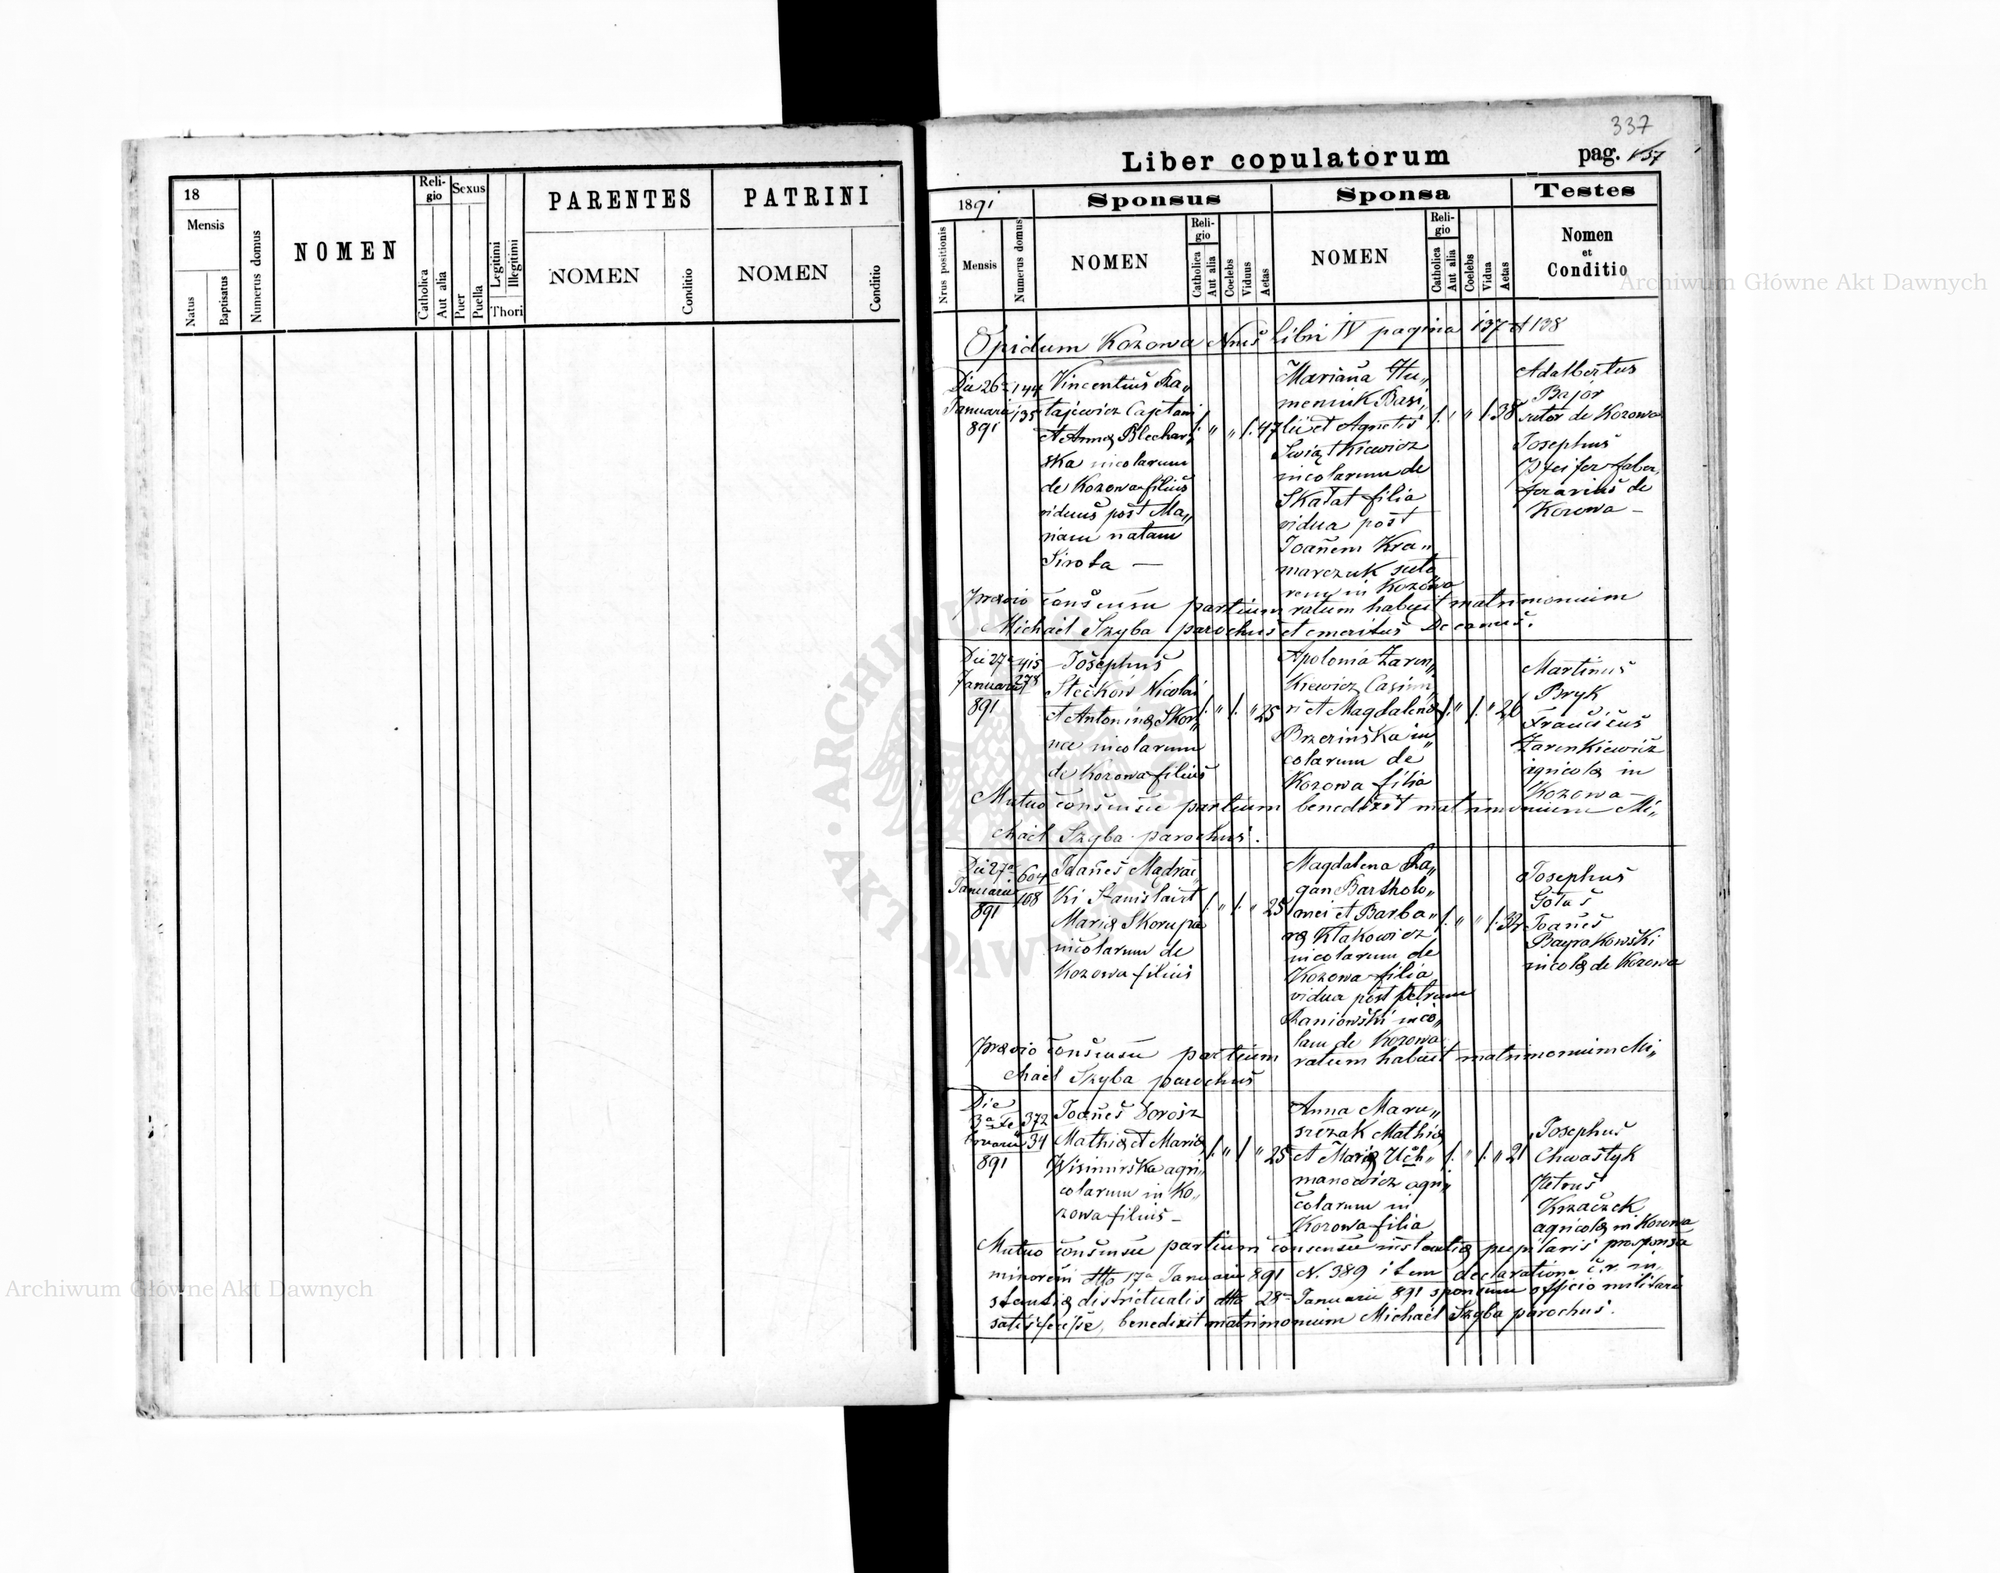 18
Mensis
Natus
Baptisatus
Numerus domus
NOMEN
Reli-
gio
Catholica
Aut alia
Sexus
Puer
Puella
Legitimi
Illegitimi
Thori
PARENTES
NOMEN
Conditio
PATRINI
NOMEN
Conditio
337
Liber copulatorum
pag. 137
1891
Sponsus
Sponsa
Testes
Nrus positionis
Mensis
Numerus domus
NOMEN
Reli-
gio
Catholica
Aut alia
Coelebs
Viduus
Aetas
NOMEN
Reli-
gio
Catholica
Aut alia
Coelebs
Vidua
Aetas
Nomen
et
Conditio
Opidum Kozowa Nrus Libri IV pagina 137 et 138
Die 26a
Januarii
891
144
135
Vincentius Ra„
tajewicz Cajetani
et Anna Blechar„
ska incolarum
de Kozowa filius
viduus post Ma„
riam natam
Sirota —
47
Marianna Hu„
meniuk Basi„
lii et Agnetis
Swiątkiewicz
incolarum de
Skałat filia
vidua post
Joannem Kra„
marczuk suto
rem in Kozowa
38
Adalbertus
Bajor
sutor de Kozowa
Josephus
Pfeifer faber
ferarius de
Kozowa —
Prævio consensu partium ratum habuit matrimonium
Michael Szyba parochus et emeritus Decanus.
Die 27a
Januarii
891
415
278
Josephus
Steckow Nicolai
et Antoninæ Skor„
na incolarum
de Kozowa filius
25
Apolonia Zaren„
kiewicz Casimi„
ri et Magdalenæ
Brzezinska in„
colarum de
Kozowa filia
26
Martinus
Bryk
Franciscus
Zarenkiewicz
agricolæ in
Kozowa —
Mutuo consensu partium benedixit matrimonium Mi„
chael Szyba parochus.
Die 27a
Januarii
891
604
108
Joannes Madrac„
ki Stanislai et
Mariæ Skorupa
incolarum de
Kozowa filius
25
Magdalena Ra„
gan Bartholo„
mei et Barba„
ræ Kłakowicz
incolarum de
Kozowa filia
vidua post Petrum
Raniowski inco„
lam de Kozowa
34
Josephus
Gołas
Joannes
Bayrakowski
incolæ de Kozowa
Prævio consensu partium ratum habuit matrimonium Mi„
chael Szyba parochus
Die
3a Fe
bruarii
891
372
34
Joannes Dorosz
Mathiæ et Mariæ
Wisinirska agri„
colarum in Ko„
zowa filius —
25
Anna Maru„
szczak Mathiæ
et Mariæ Uch„
manowicz agri„
colarum in
Kozowa filia
21
Josephus
Chwastyk
Petrus
Krzaczek
agricolæ in Kozowa
Mutuo consensu partium consensu instantiæ pupilaris pro sponsa
minoreni dtto 17a Januarii 891 N. 389 item declaratione c.r. in„
stantiæ districtualis dtto 28a Januarii 891 sponsum officio militari
satisfecisse, benedixit matrimonium Michael Szyba parochus.
Archiwum Główne Akt Dawnych
Archiwum Główne Akt Dawnych
ARCHIWUM GŁÓWNE AKT DAWNYCH